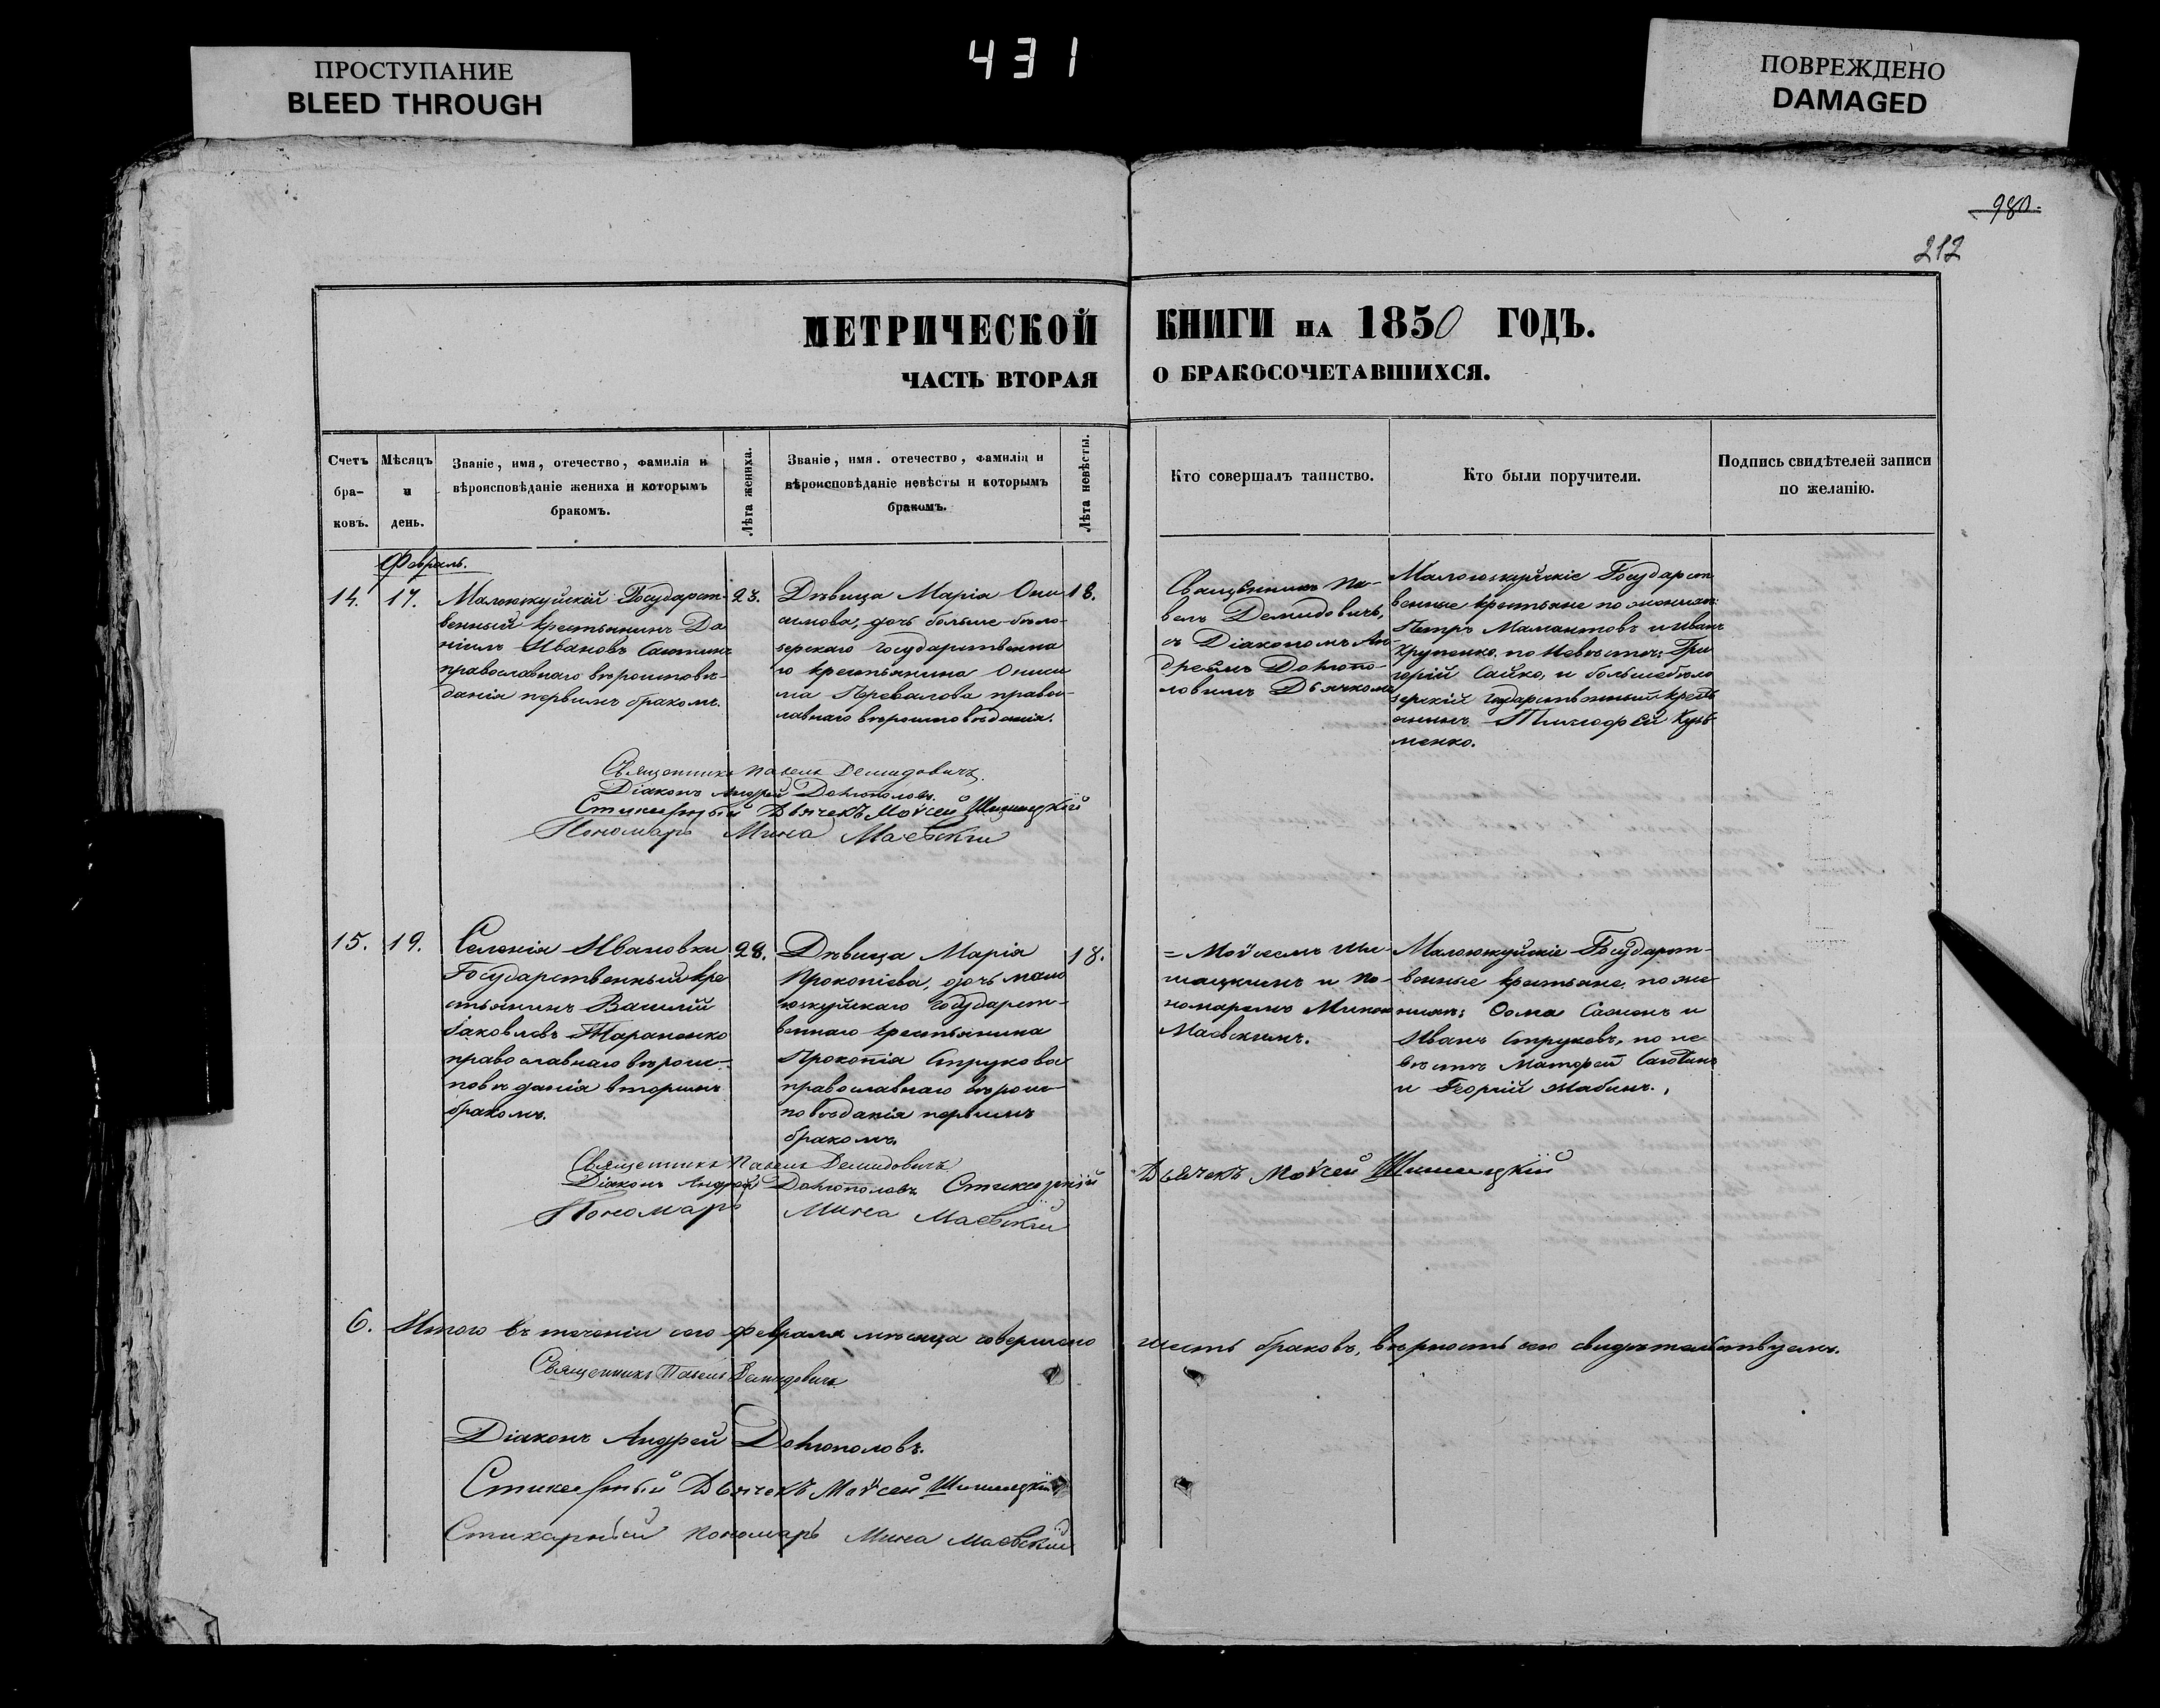 431
ПРОСТУПАНИЕ
BLEED THROUGH
ПОВРЕЖДЕНО
DAMAGED
980.
212
МЕТРИЧЕСКОЙ КНИГИ НА 1850 ГОДЪ.
ЧАСТЬ ВТОРАЯ О БРАКОСОЧЕТАВШИХСЯ.
Счетъ бра-ковъ.
Мѣсяцъ и день.
Званіе, имя, отечество, фамилія и
вѣроисповѣданіе жениха и которымъ
бракомъ.
Лѣта жениха.
Званіе, имя. отечество, фамилія и
вѣроисповѣданіе невѣсты и которымъ
бракомъ.
Лѣта невѣсты.
Кто совершалъ таинство.
Кто были поручители.
Подпись свидѣтелей записи
по желанію.
Февраль.
14.
17.
Малоюкуйскій Государст-
венный крестьянинъ Да
ніилъ Ивановъ
православнаго вѣроисповѣ-
данія первымъ бракомъ.
23.
Дѣвица Марія Они
симова, дочь больше-бѣло-
зерскаго государственна
го крестьянина Ониси
ма Перевалова правос-
лавнаго вѣроисповѣданія.
18.
Священникъ Па-
велъ Демидовичъ,
съ Діакономъ Ан-
дреемъ Доhтопо-
ловымъ Дьячкомъ
Малоюкуйскіе Государст
венные крестьяне по женихѣ:
Петръ Мамантовъ и Иванъ
Крупенко, по невѣстѣ: Гри
горій Сайко, и большебѣло
зерскій государственный кресть
янинъ Тимофей Кузь
менко.
Священникъ Павелъ Демидовичъ.
Діаконъ Андрей Доhтополовъ.
Стихарный Дьячекъ Моѵсей Шишацкій
Пономарь Мина Маевскій
15.
19.
Селенія Ивановки
Государственный кре
стьянинъ Василій
Іаковлевъ Тараненко
православнаго вѣроис-
повѣданія вторымъ
бракомъ.
28.
Дѣвица Марія
Прокопіева, дочь мало
юкуйскаго государст-
веннаго крестьянина
Прокопія Струкова
православнаго вѣроис-
повѣданія первымъ
бракомъ.
18.
= Моѵсеемъ Ши-
шацкимъ и по-
номаремъ Миною
Маевскимъ.
Малоюкуйскіе Государст-
венные крестьяне, по же-
нихѣ: Ѳома и
Иванъ Струковъ, по не-
вѣстѣ
и Георгій Жабинъ.
Священникъ Павелъ Демидовичъ
Діаконъ Андрей Доhтополовъ Стихарный Дьячекъ Моѵсей Шишацкій
Пономарь Мина Маевскій
6. Итого въ теченіи сего февраля мѣсяца совершено шесть браковъ, вѣрность сего свидѣтельствуемъ.
Священникъ Павелъ Демидовичъ
Діаконъ Андрей Доhтополовъ.
Стихарный Дьячекъ Моѵсей Шишацкій
Стихарный пономарь Мина Маевскій